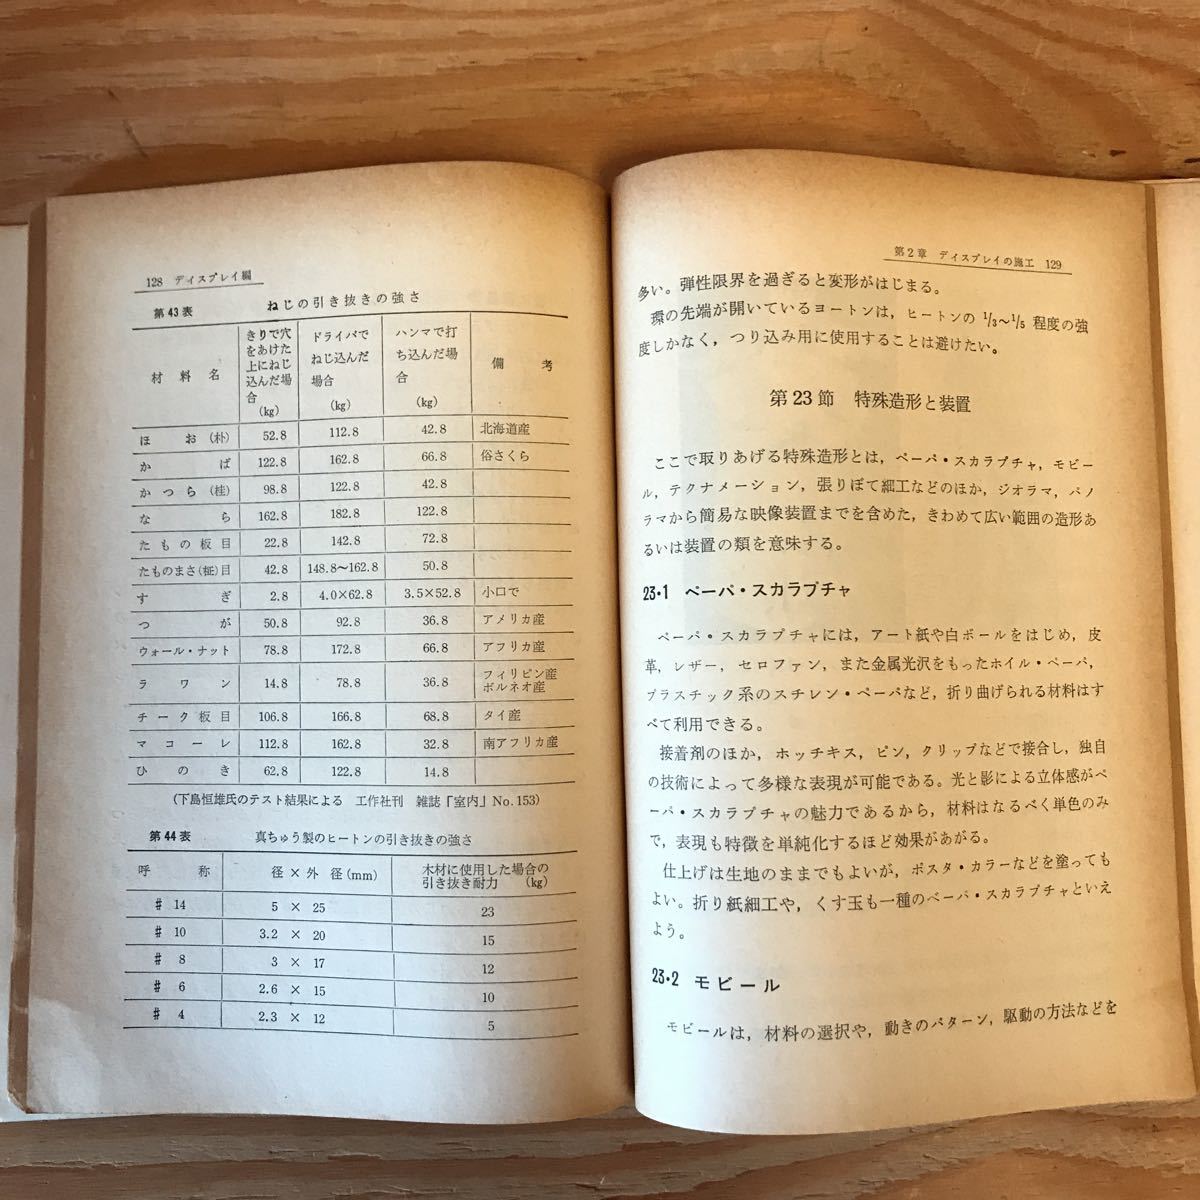 128 ディスプレイ編
第43表 ねじの引き抜きの強さ
材料名 きりで穴をあけた上にねじ込んだ場合(kg) ドライバでねじ込んだ場合(kg) ハンマで打ち込んだ場合(kg) 備考
ほお(朴) 52.8 112.8 42.8 北海道産
かば 122.8 162.8 66.8 俗さくら
かつら(桂) 98.8 122.8 42.8
なら 162.8 182.8 122.8
たもの板目 22.8 142.8 72.8
たものまさ(柾)目 42.8 148.8〜162.8 50.8
すぎ 2.8 4.0×62.8 3.5×52.8 小口で
つが 50.8 92.8 36.8 アメリカ産
ウォール・ナット 78.8 172.8 66.8 アフリカ産
ラワン 14.8 78.8 36.8 フィリピン産ボルネオ産
チーク板目 106.8 166.8 68.8 タイ産
マコーレ 112.8 162.8 32.8 南アフリカ産
ひのき 62.8 122.8 14.8
(下島恒雄氏のテスト結果による 工作社刊 雑誌「室内」No.153)
第44表 真ちゅう製のヒートンの引き抜きの強さ
呼称 径×外径(mm) 木材に使用した場合の引き抜き耐力(kg)
# 14 5 × 25 23
# 10 3.2 × 20 15
# 8 3 × 17 12
# 6 2.6 × 15 10
# 4 2.3 × 12 5
第2章 ディスプレイの施工 129
多い。弾性限界を過ぎると変形がはじまる。
環の先端が開いているヨートンは，ヒートンの 1/3〜1/5 程度の強
度しかなく，つり込み用に使用することは避けたい。
第23節 特殊造形と装置
ここで取りあげる特殊造形とは，ペーパ・スカラプチャ，モビー
ル，テクナメーション，張りぼて細工などのほか，ジオラマ，パノ
ラマから簡易な映像装置までを含めた，きわめて広い範囲の造形あ
るいは装置の類を意味する。
23・1 ペーパ・スカラプチャ
ペーパ・スカラプチャには，アート紙や白ボールをはじめ，皮
革，レザー，セロファン，また金属光沢をもったホイル・ペーパ，
プラスチック系のスチレン・ペーパなど，折り曲げられる材料はす
べて利用できる。
接着剤のほか，ホッチキス，ピン，クリップなどで接合し，独自
の技術によって多様な表現が可能である。光と影による立体感がペ
ーパ・スカラプチャの魅力であるから，材料はなるべく単色のみ
で，表現も特徴を単純化するほど効果があがる。
仕上げは生地のままでもよいが，ポスタ・カラーなどを塗っても
よい。折り紙細工や，くす玉も一種のペーパ・スカラプチャといえ
よう。
23・2 モビール
モビールは，材料の選択や，動きのパターン，駆動の方法などを